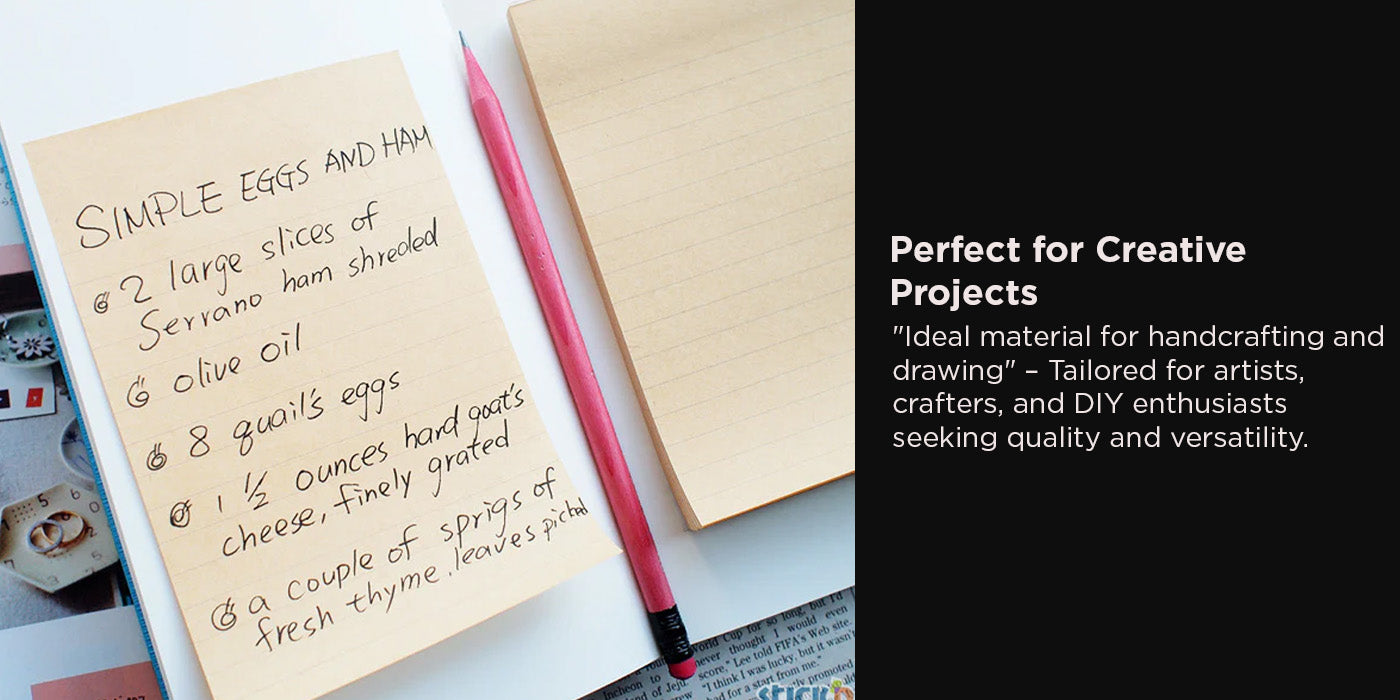 SIMPLE EGGS AND HAM
2 large slices of
Serrano ham shreded
olive oil
8 quail's eggs
1 1/2 ounces hard goat's
cheese, finely grated
a couple of sprigs of
fresh thyme, leaves picked
Perfect for Creative
Projects
"Ideal material for handcrafting and
drawing" – Tailored for artists,
crafters, and DIY enthusiasts
seeking quality and versatility.
so long, but I'd
World Cup for
never thought I would even
score," Lee told FIFA's Web site.
"I think I was lucky, but it wasn't
bad for a start from me."
Incheon to
land of Jeju.
promoted
STICK'N
5
6